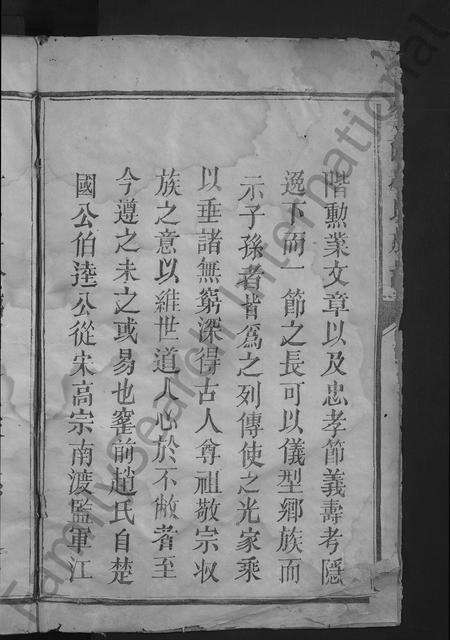 階勳業文章以及忠孝節義壽考隱
逸下而一節之長可以儀型鄉族而
示子孫者皆為之列傳使之光家乘
以垂諸無窮深得古人尊祖敬宗収
族之意以維世道人心於不敝者至
今遵之未之或易也窪前趙氏自楚
國公伯逵公從宋高宗南渡監軍江
FamilySearch International